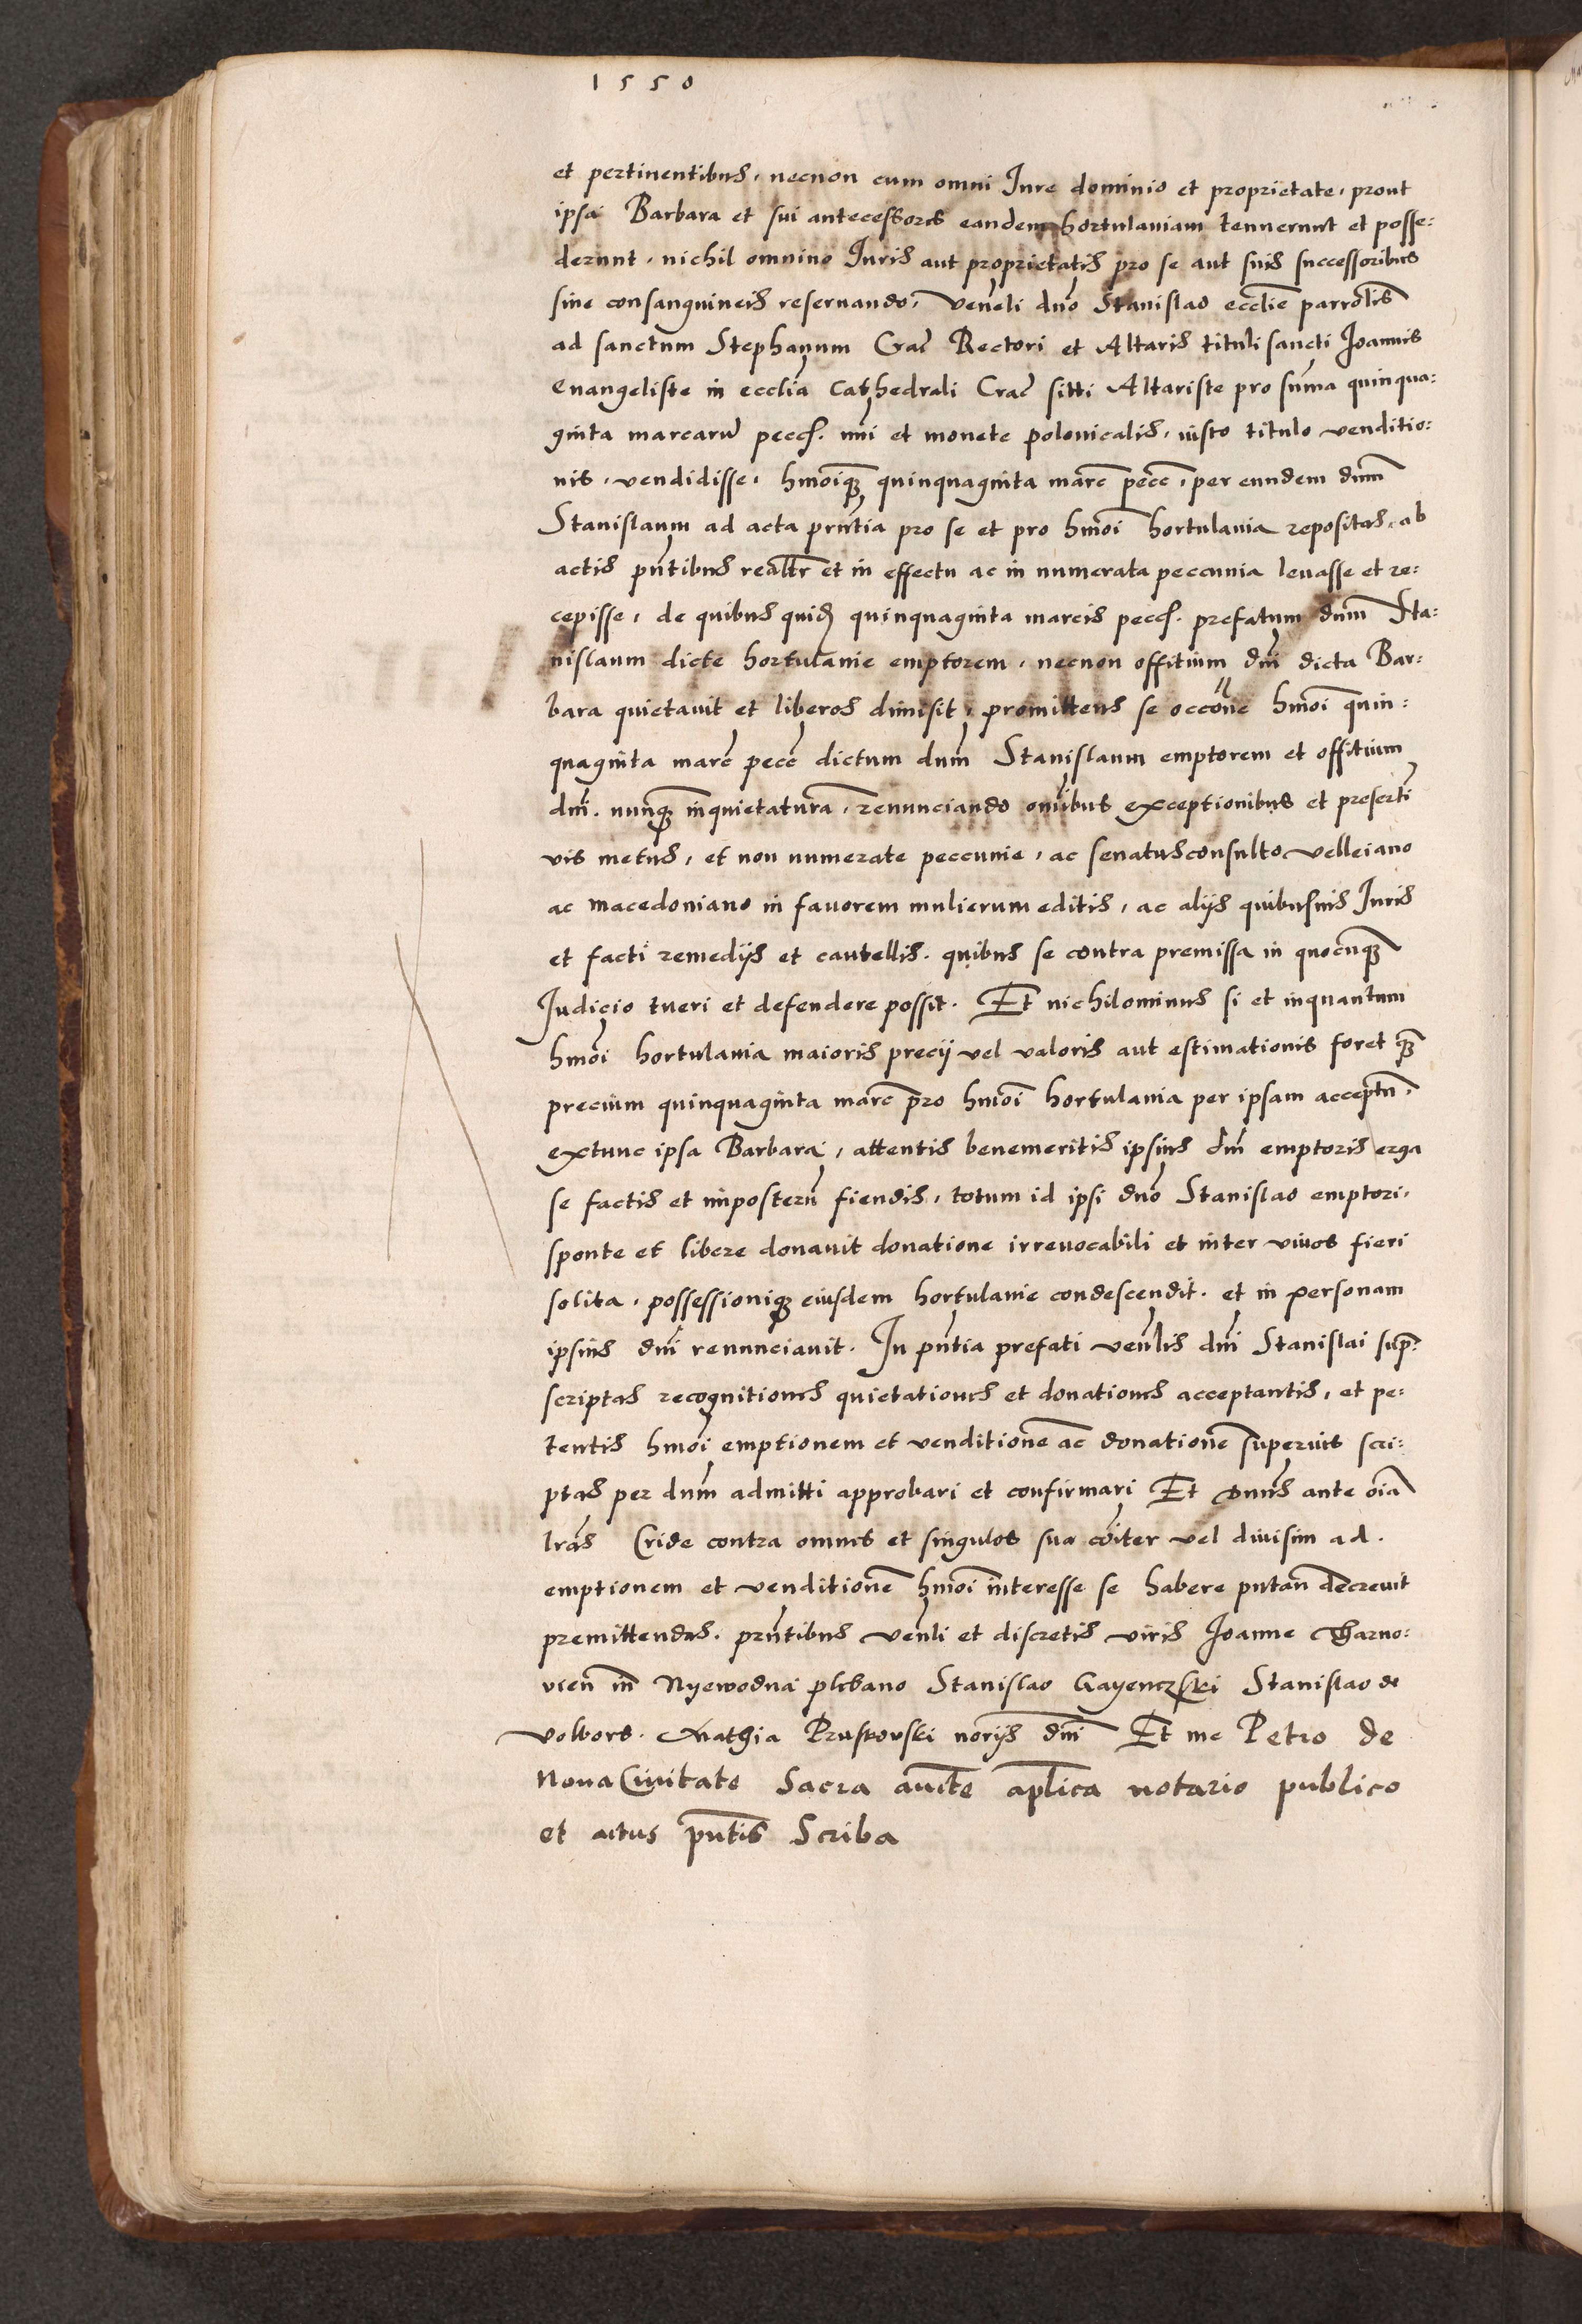 1550
et pertinentibus, necnon cum omni Iure dominio et proprietate, prout
ipsa Barbara et sui antecessores eandem hortulaniam tenuerunt et posse:
derunt, nichil omnino Iuris aut proprietatis pro se aut suis successoribus
siue consanguineis reseruando, veneli dno Stanislao ecclie parrolis
ad sanctum Stephanum Crac Rectori et Altaris tituli sancti Joannis
Euangeliste in ecclia Cathedrali Crac sitti Altariste pro suma quinqua:
ginta marcaru pecc. nui et monete polonicalis, iusto titulo venditio:
nis, vendidisse, hmoiq quinquaginta marc pecc, per eundem dum
Stanislaum ad acta prntia pro se et pro hmoi hortulania repositas, ab
actis pntibus realtr et in effectu ac in numerata peccunia leuasse et re:
cepisse, de quibus quid quinquaginta marcis pecc. prefatum dum Sta:
nislaum dicte hortulanie emptorem, necnon offitium dni dicta Bar:
bara quietauit et liberos dimisit, promittens se occone hmoi quin:
quaginta marc pecc dictum dum Stanislaum emptorem et offitium
dni. nunq inquietatura, renunciando omibus exceptionibus et preserti
vis metus, et non numerate peccunie, ac senatusconsulto velleiano
ac macedoniano in fauorem mulierum editis, ac alijs quibusuis Iuris
et facti remedijs et cautellis. quibus se contra premissa in quocunq
Iudicio tueri et defendere possit. Et nichilominus si et inquantum
hmoi hortulania maioris precij vel valoris aut estimationis foret q
precium quinquaginta marc pro hmoi hortulania per ipsam acceptu,
extunc ipsa Barbara, attentis benemeritis ipsius dni emptoris erga
se factis et imposteru fiendis, totum id ipsi dno Stanislao emptori,
sponte et libere donauit donatione irreuocabili et inter viuos fieri
solita, possessioniq eiusdem hortulanie condescendit. et in personam
ipsius dni renunciauit. In pntia prefati venlis dni Stanislai sup:
scriptas recognitiones quietationes et donationes acceptantis, et pe:
tentis hmoi emptionem et venditione ac donatione superius scri:
ptas per dum admitti approbari et confirmari Et dnus ante oia
lras Cride contra omnes et singulos sua coiter vel diuisim ad.
emptionem et venditione hmoi interesse se habere putan decreuit
premittendas. prntibus venli et discretis viris Joanne Tharno:
vien in Nyewodna plebano Stanislao Gayenczski Stanislao de
volbors. Mathia Pruskovski norijs dni Et me Petro de
Noua Ciuitate Sacra aucte aplica notario publico
et actus pntis Scriba